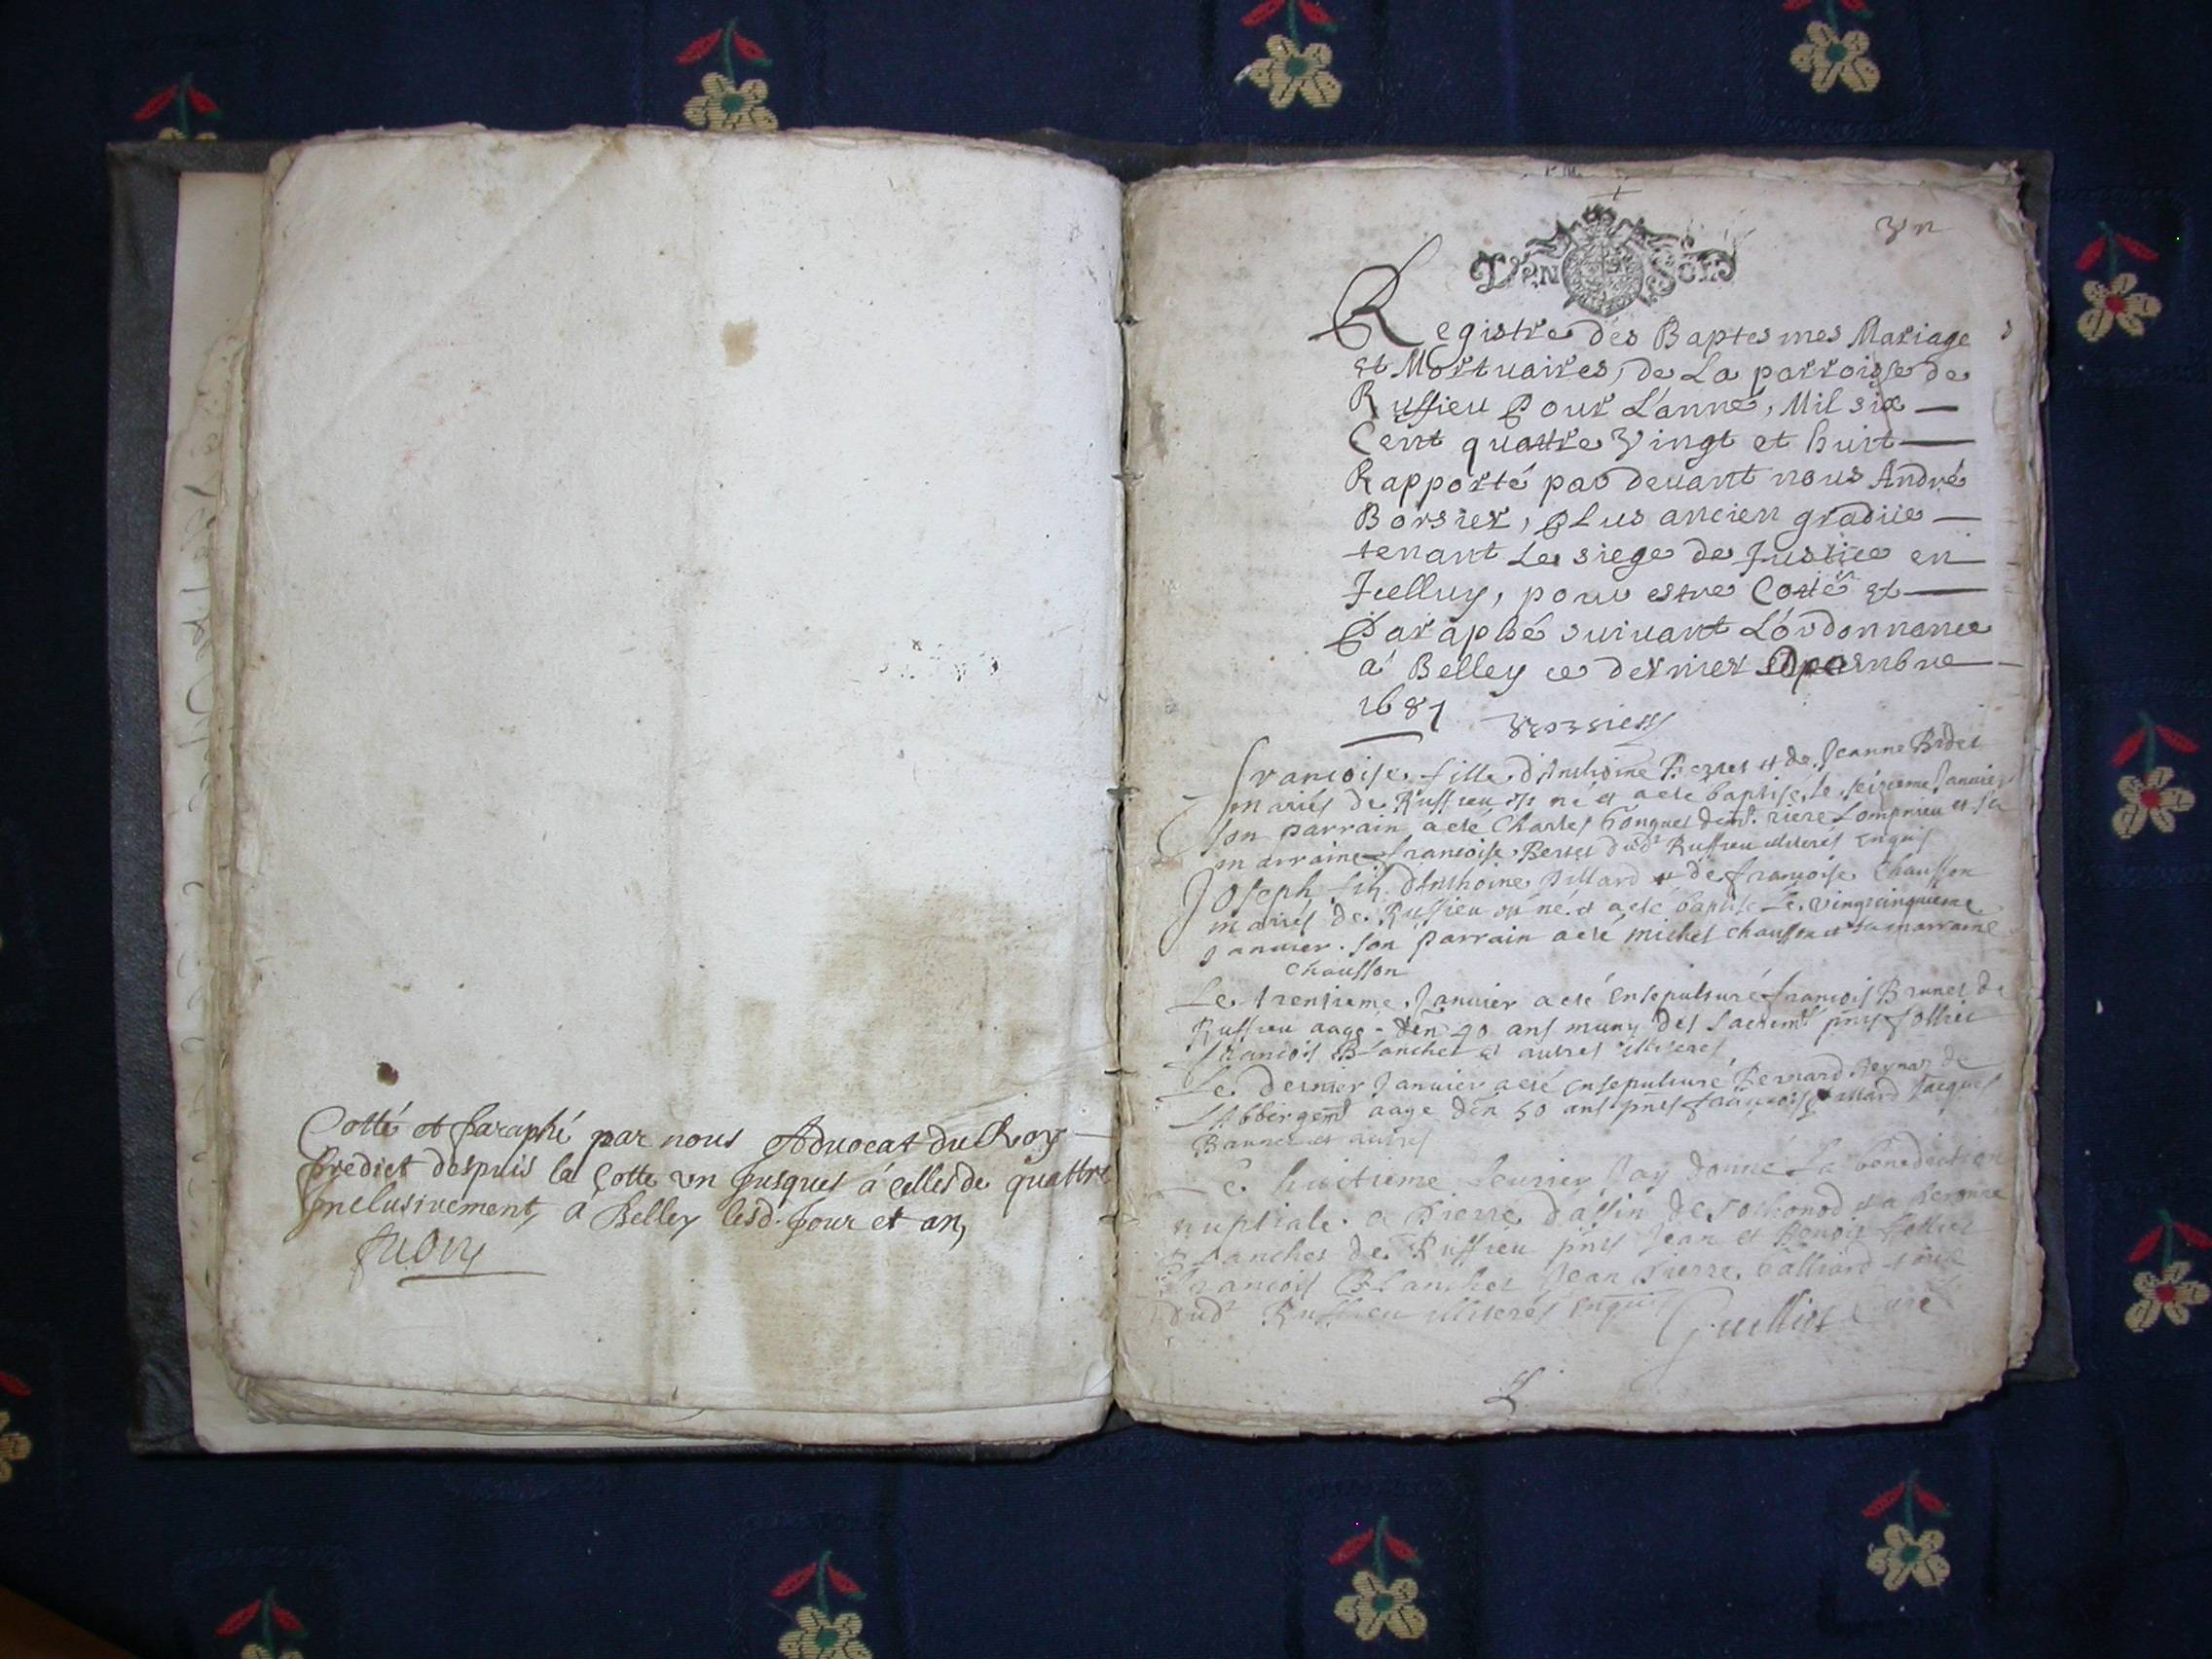 Cotté et paraphé par nous Advocat du Roy
predict despuis la Cotte un jusques á celles de quattre
Inclusivement, á Belley lesd. jour et an,
un
UN SOL
Registre des Baptesmes Mariages
et Mortuaires, de La parroisse de
Ruffieu Pour L'anné, Mil six
Cent quattre Vingt et huit
Rapporté par devant nous André
Borsier, plus ancien gradué
tenant Le siege de Justice en
Icelluy, pour estre Cotté et
Paraphé suivant L'ordonnance
á Belley ce dernier Decembre
1687
Francoise fille d'Anthoine et de Jeanne
mariés de Ruffieu est né et a esté baptisé le seizieme Janvier
son parrain a esté Charles rière Lompnieu et sa
marraine francoise dud Ruffieu illiterés enquis
Joseph fils d'Anthoine pillard et de francoise Chausson
mariés de Ruffieu est né et a esté baptisé Le vingtcinquieme
Janvier. son parrain a esté michel chausson et sa marraine
Chausson
Le trentieme Janvier a esté ensepulturé francois Brunet de
Ruffieu aagé d'en 40 ans muny des sacrem pnts
francois Blanchet et autres illiteres
Le dernier Janvier a esté ensepulturé Bernard de
L'Abbergemt aagé d'en 50 ans pnts francois pillard Jacques
et autres
Le huitieme feurier Jay donné La benediction
nuptiale a Pierre de Sothonod et a
Blanchet de Ruffieu pnts Jean et Benoit
francois Blanchet Jean Pierre
dud Ruffieu illiterés enquis Curé